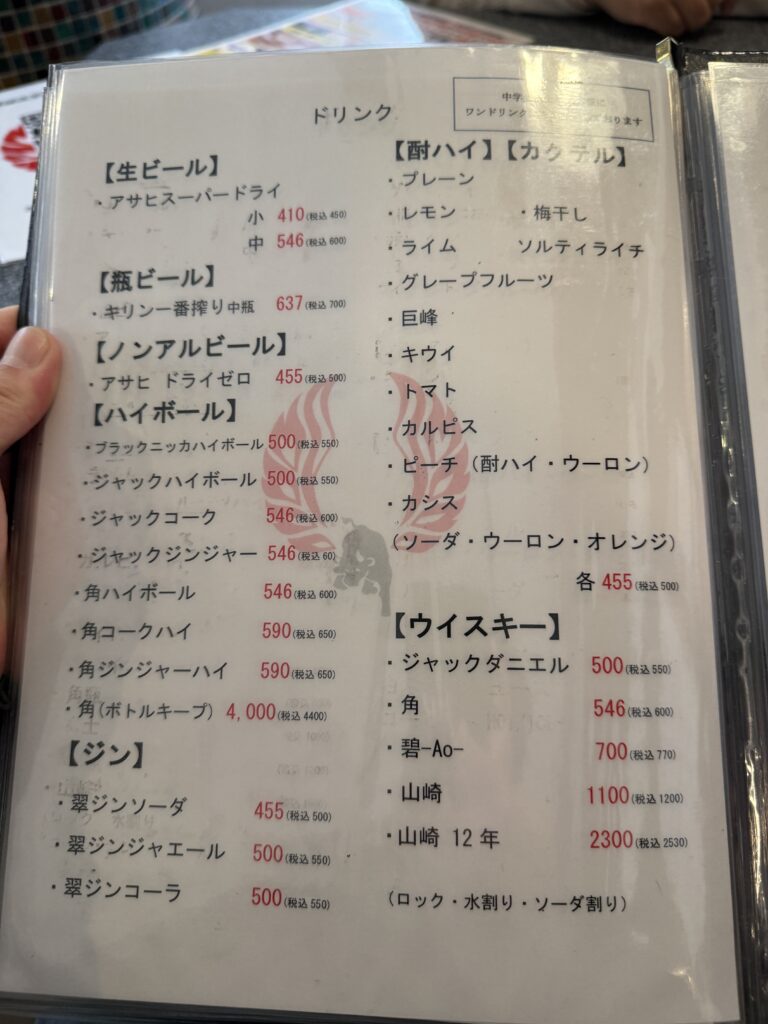 ドリンク
中学
ワンドリンク
おります
【生ビール】
・アサヒスーパードライ
小 410(税込450)
中 546(税込600)
【瓶ビール】
・キリン一番搾り中瓶 637(税込700)
【ノンアルビール】
・アサヒ ドライゼロ 455(税込500)
【ハイボール】
・ブラックニッカハイボール 500(税込550)
・ジャックハイボール 500(税込550)
・ジャックコーク 546(税込600)
・ジャックジンジャー 546(税込60)
・角ハイボール 546(税込600)
・角コークハイ 590(税込650)
・角ジンジャーハイ 590(税込650)
・角(ボトルキープ) 4,000(税込4400)
【ジン】
・翠ジンソーダ 455(税込500)
・翠ジンジャエール 500(税込550)
・翠ジンコーラ 500(税込550)
【酎ハイ】【カクテル】
・プレーン
・レモン ・梅干し
・ライム ソルティライチ
・グレープフルーツ
・巨峰
・キウイ
・トマト
・カルピス
・ピーチ（酎ハイ・ウーロン）
・カシス
（ソーダ・ウーロン・オレンジ）
各 455(税込500)
【ウイスキー】
・ジャックダニエル 500(税込550)
・角 546(税込600)
・碧-Ao- 700(税込770)
・山崎 1100(税込1200)
・山崎 12年 2300(税込2530)
（ロック・水割り・ソーダ割り）